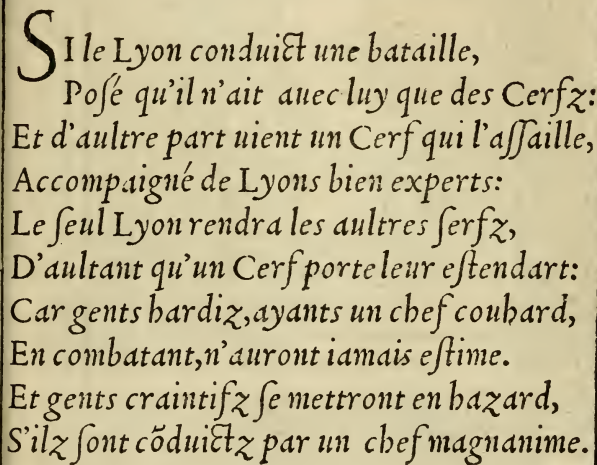 SI le Lyon conduict une bataille,
Posé qu'il n'ait auec luy que des Cerfz:
Et d'aultre part uient un Cerf qui l'assaille,
Accompaigné de Lyons bien experts:
Le seul Lyon rendra les aultres serfz,
D'aultant qu'un Cerf porte leur estendart:
Car gents hardiz, ayants un chef couhard,
En combatant, n'auront iamais estime.
Et gents craintifz se mettront en hazard,
S'ilz sont cõduictz par un chef magnanime.